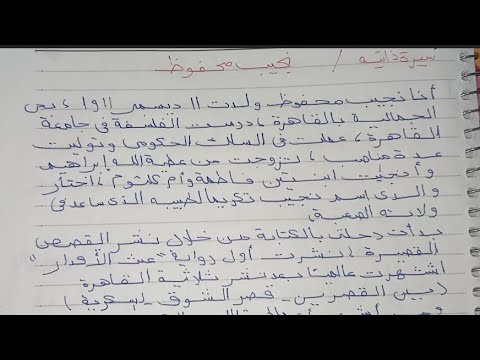 سيرة ذاتية / نجيب محفوظ
أنا نجيب محفوظ ولدت ١١ ديسمبر ١٩١١ ، بحي
الجمالية بالقاهرة ، درست الفلسفة في جامعة
القاهرة ، عملت في السلك الحكومي وتوليت
عدة مناصب ، تزوجت من عطية الله إبراهيم
وأنجبت ابنتين فاطمة وأم كلثوم ، اختار
والدى اسم نجيب تكريما لطبيبه الذى ساعد في
ولادته الصعبة
بدأت رحلتى بالكتابة من خلال نشر القصص
القصيرة ، نشرت أول رواية "عبث الأقدار"
اشتهرت عالميا بعد نشر ثلاثية القاهرة
( بين القصرين - قصر الشوق - السكرية )